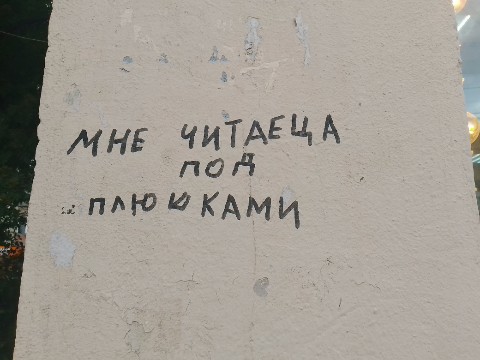 МНЕ ЧИТАЕЦА
ПОД
ПЛЮЮКАМИ